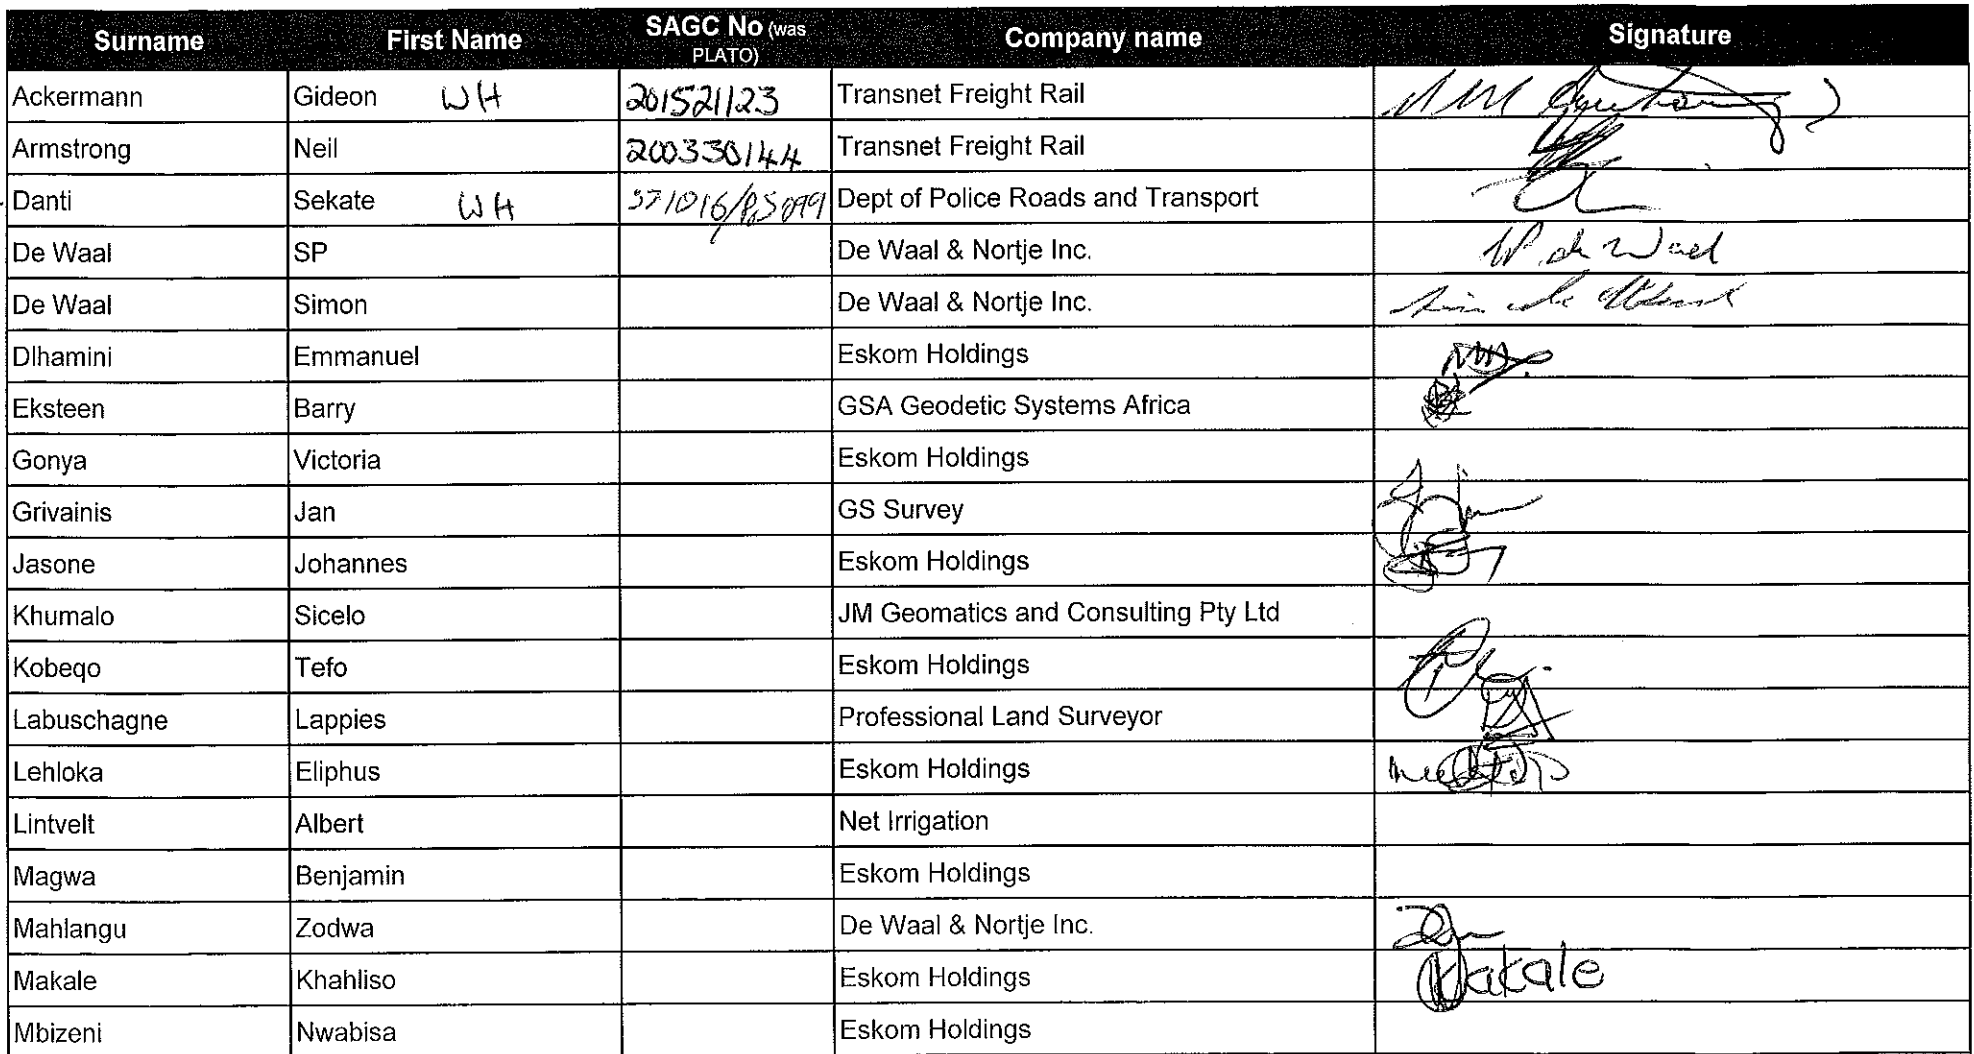 Surname First Name SAGC No (was PLATO) Company name Signature
Ackermann Gideon WH 201521123 Transnet Freight Rail
Armstrong Neil 200330144 Transnet Freight Rail
Danti Sekate WH Dept of Police Roads and Transport
De Waal SP De Waal & Nortje Inc. de Waal
De Waal Simon De Waal & Nortje Inc.
Dlhamini Emmanuel Eskom Holdings
Eksteen Barry GSA Geodetic Systems Africa
Gonya Victoria Eskom Holdings
Grivainis Jan GS Survey
Jasone Johannes Eskom Holdings
Khumalo Sicelo JM Geomatics and Consulting Pty Ltd
Kobeqo Tefo Eskom Holdings
Labuschagne Lappies Professional Land Surveyor
Lehloka Eliphus Eskom Holdings
Lintvelt Albert Net Irrigation
Magwa Benjamin Eskom Holdings
Mahlangu Zodwa De Waal & Nortje Inc.
Makale Khahliso Eskom Holdings Makale
Mbizeni Nwabisa Eskom Holdings